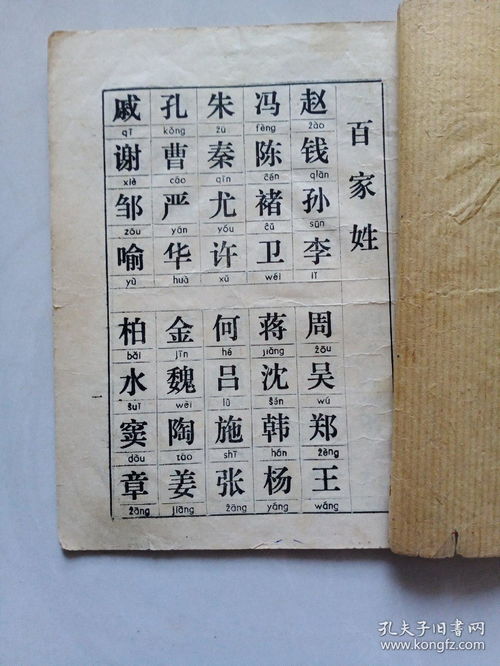 百家姓
赵 žào 钱 qián 孙 sūn 李 lǐ
周 žōu 吴 wú 郑 žèng 王 wáng
冯 féng 陈 čén 褚 čǔ 卫 wèi
蒋 jiǎng 沈 šěn 韩 hán 杨 yáng
朱 žū 秦 qín 尤 yóu 许 xǔ
何 hé 吕 lǚ 施 shī 张 žāng
孔 kǒng 曹 cáo 严 yán 华 huà
金 jīn 魏 wèi 陶 táo 姜 jiāng
戚 qī 谢 xiè 邹 zōu 喻 yù
柏 bǎi 水 šuǐ 窦 dòu 章 žāng
孔夫子旧书网
www.kongfz.com